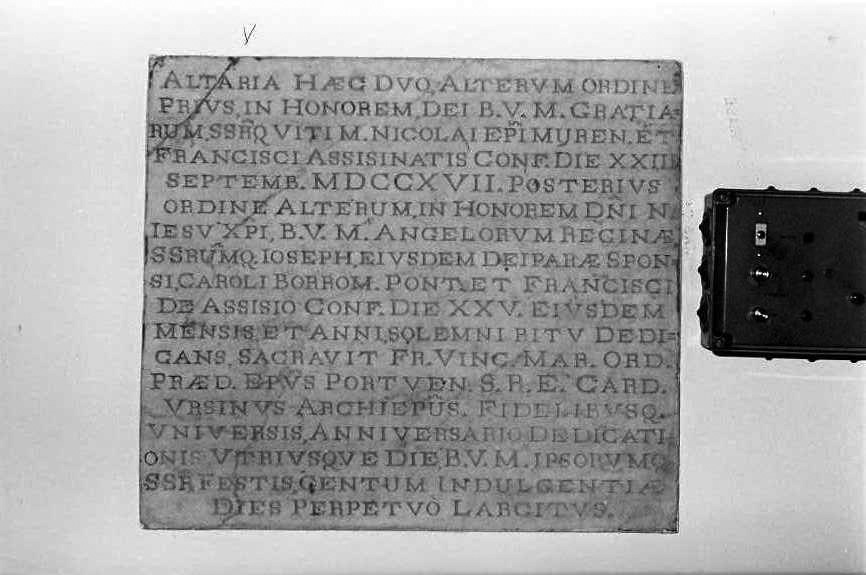 V
ALTARIA HÆC DVO, ALTERVM ORDINE
PRIVS, IN HONOREM, DEI B. V. M. GRATIA=
RUM, SSR̃Q VITI M. NICOLAI EP̃I MYREN. ET
FRANCISCI ASSISINATIS CONF. DIE XXII
SEPTEMB. MDCCXVII. POSTERIVS
ORDINE ALTERUM, IN HONOREM DÑI N.
IESV XPI, B. V. M. ANGELORVM REGINÆ,
SSRUMQ. IOSEPH, EIVSDEM DEIPARÆ SPON=
SI, CAROLI BORROM. PONT. ET FRANCISCI
DE ASSISIO CONF. DIE XXV. EIVSDEM
MENSIS, ET ANNI, SOLEMNI RITV DEDI=
CANS, SACRAVIT FR. VINC. MAR. ORD.
PRÆD. EPVS PORTVEN. S. R. E. CARD.
VRSINVS ARCHIEPŨS. FIDELIBVSQ.
VNIVERSIS, ANNIVERSARIO DEDICATI=
ONIS VTRIVSQVE DIE, B. V. M. IPSORVMQ
SSR̃ FESTIS, CENTUM INDULGENTIÆ
DIES PERPETVÒ LARGITVS.